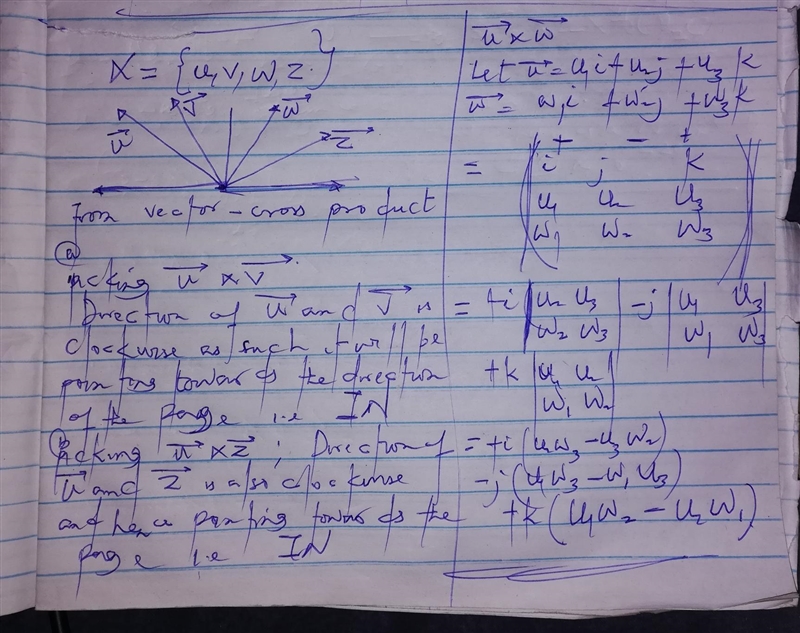 X = {u, v, w, z.}
u⃗ v⃗ w⃗ z⃗
From vector-cross product
(a)
picking u⃗ × v⃗
Direction of u⃗ and v⃗ is
clockwise as such it will be
pointing towards the direction
of the page i.e IN
(b)
picking u⃗ × z⃗ ; Direction of
u⃗ and z⃗ is also clockwise
and hence pointing towards the
page i.e IN
u⃗ × w⃗
Let u⃗ = u₁i + u₂j + u₃k
w⃗ = w₁i + w₂j + w₃k
+ − +
= | i j k |
| u₁ u₂ u₃ |
| w₁ w₂ w₃ |
= +i | u₂ u₃ | −j | u₁ u₃ |
| w₂ w₃ | | w₁ w₃ |
+k | u₁ u₂ |
| w₁ w₂ |
= +i (u₂w₃ − u₃w₂)
−j (u₁w₃ − w₁u₃)
+k (u₁w₂ − u₂w₁)